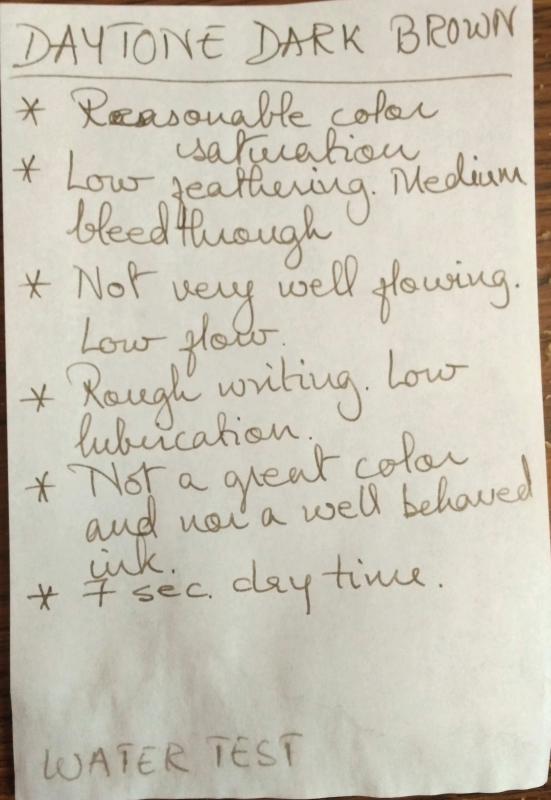 DAYTONE DARK BROWN
* Reasonable color
saturation
* Low feathering. Medium
bleedthrough
* Not very well flowing.
Low flow.
* Rough writing. Low
lubrication.
* Not a great color
and nor a well behaved
ink.
* 7 sec. dry time.
WATER TEST